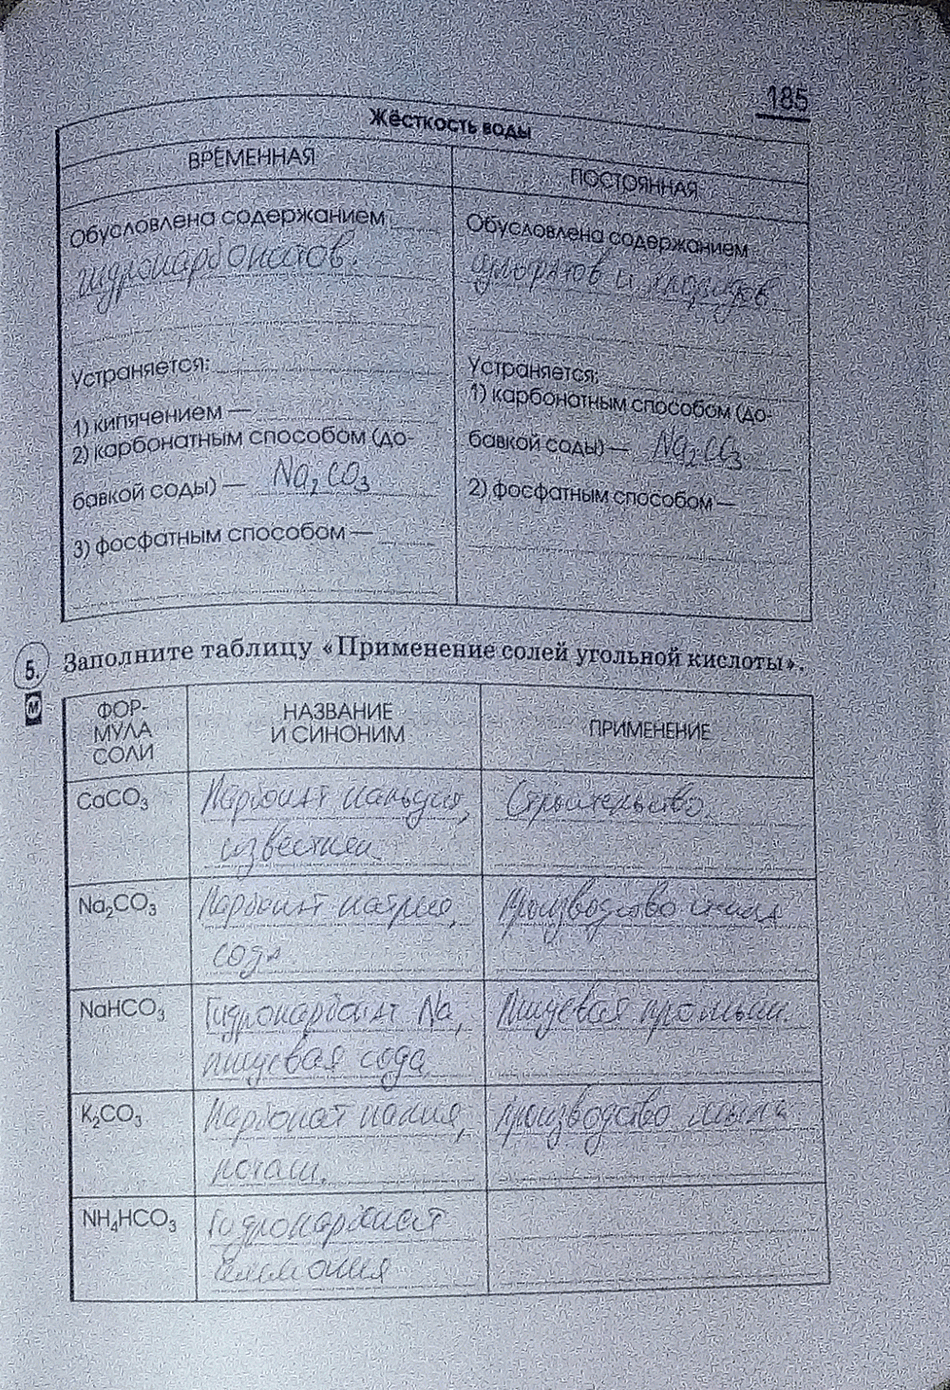 185
Жёсткость воды
ВРЕМЕННАЯ
ПОСТОЯННАЯ
Обусловлена содержанием
гидрокарбонатов.
Устраняется:
1) кипячением —
2) карбонатным способом (до-
бавкой соды) — Na₂CO₃
3) фосфатным способом —
Обусловлена содержанием
сульфатов и хлоридов
Устраняется:
1) карбонатным способом (до-
бавкой соды) — Na₂CO₃
2) фосфатным способом —
5. Заполните таблицу «Применение солей угольной кислоты».
М
ФОР-
МУЛА
СОЛИ
НАЗВАНИЕ
И СИНОНИМ
ПРИМЕНЕНИЕ
CaCO₃
Карбонат кальция,
известняк
Строительство.
Na₂CO₃
Карбонат натрия,
сода
Производство стекла
NaHCO₃
Гидрокарбонат Na,
пищевая сода
Пищевая промышл.
K₂CO₃
Карбонат калия,
поташ.
Производство мыла
NH₄HCO₃
Гидрокарбонат
аммония